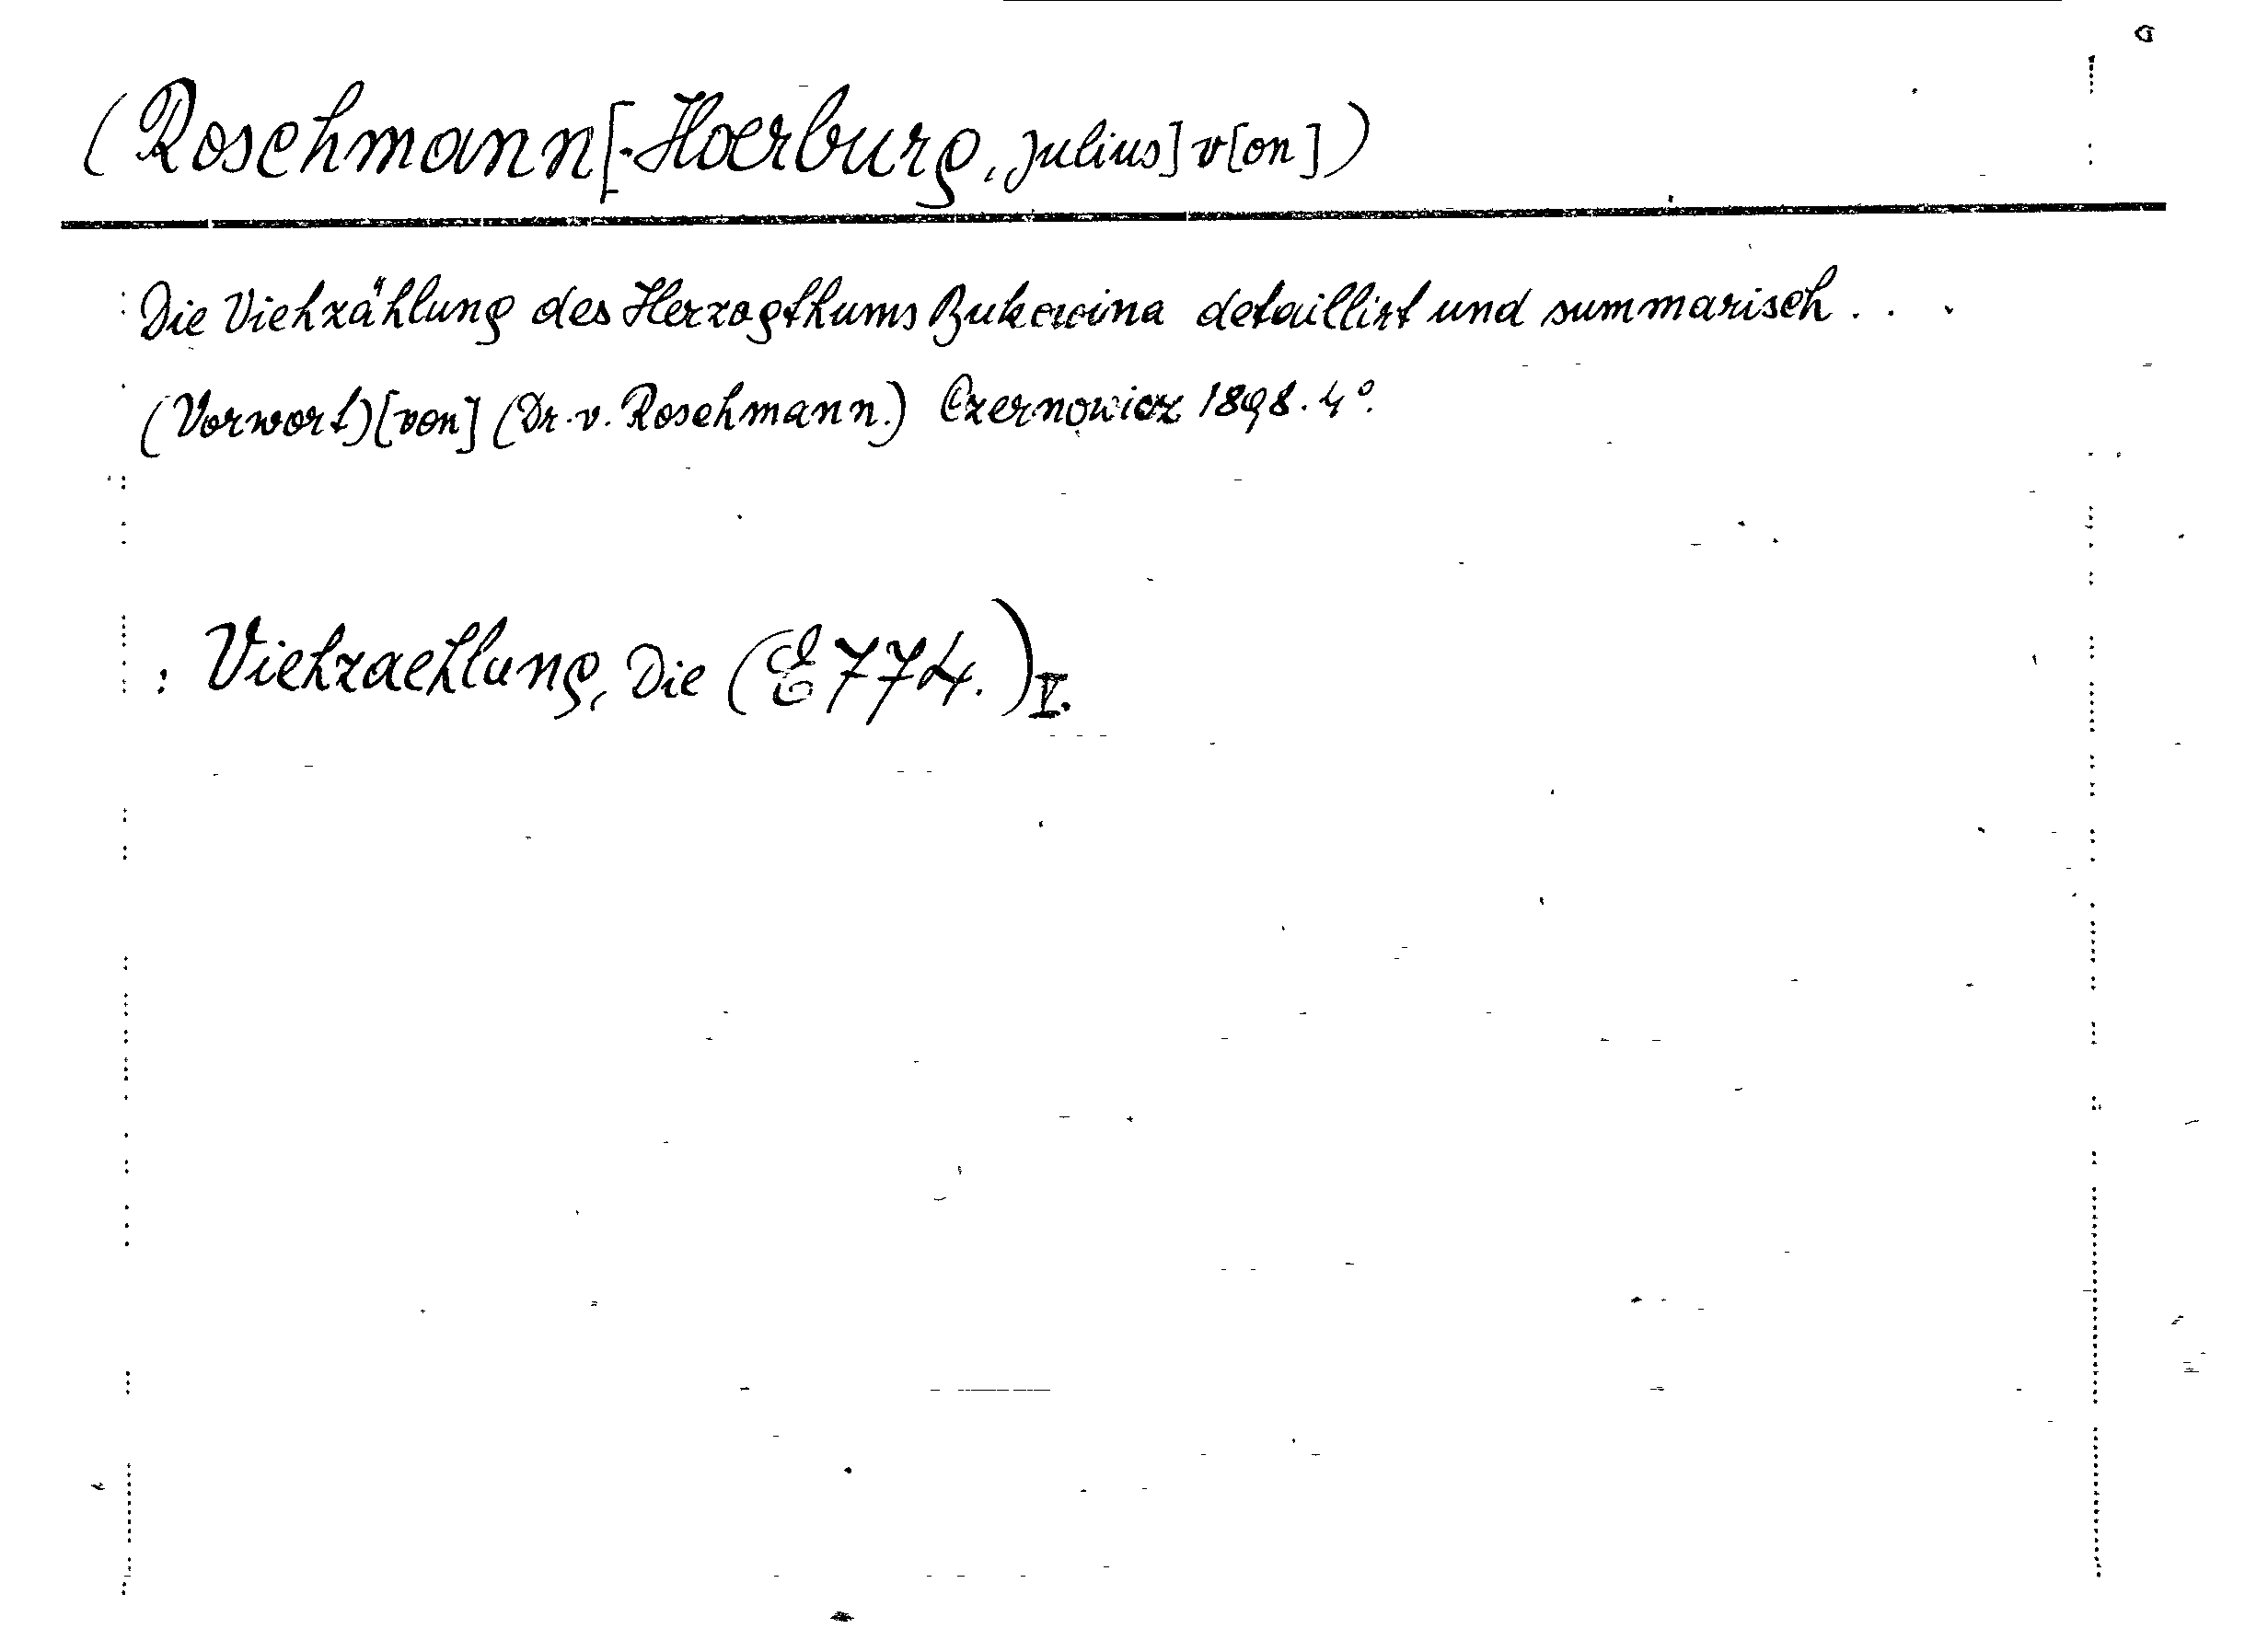 (Roschmann[-Hoerburg, Julius] v[on])
Die Viehzählung des Herzogthums Bukowina detaillirt und summarisch . . .
(Vorwort) [von] (Dr. v. Roschmann.) Czernowicz 1898. 4°.
: Viehzaehlung, Die (E 774.) I.